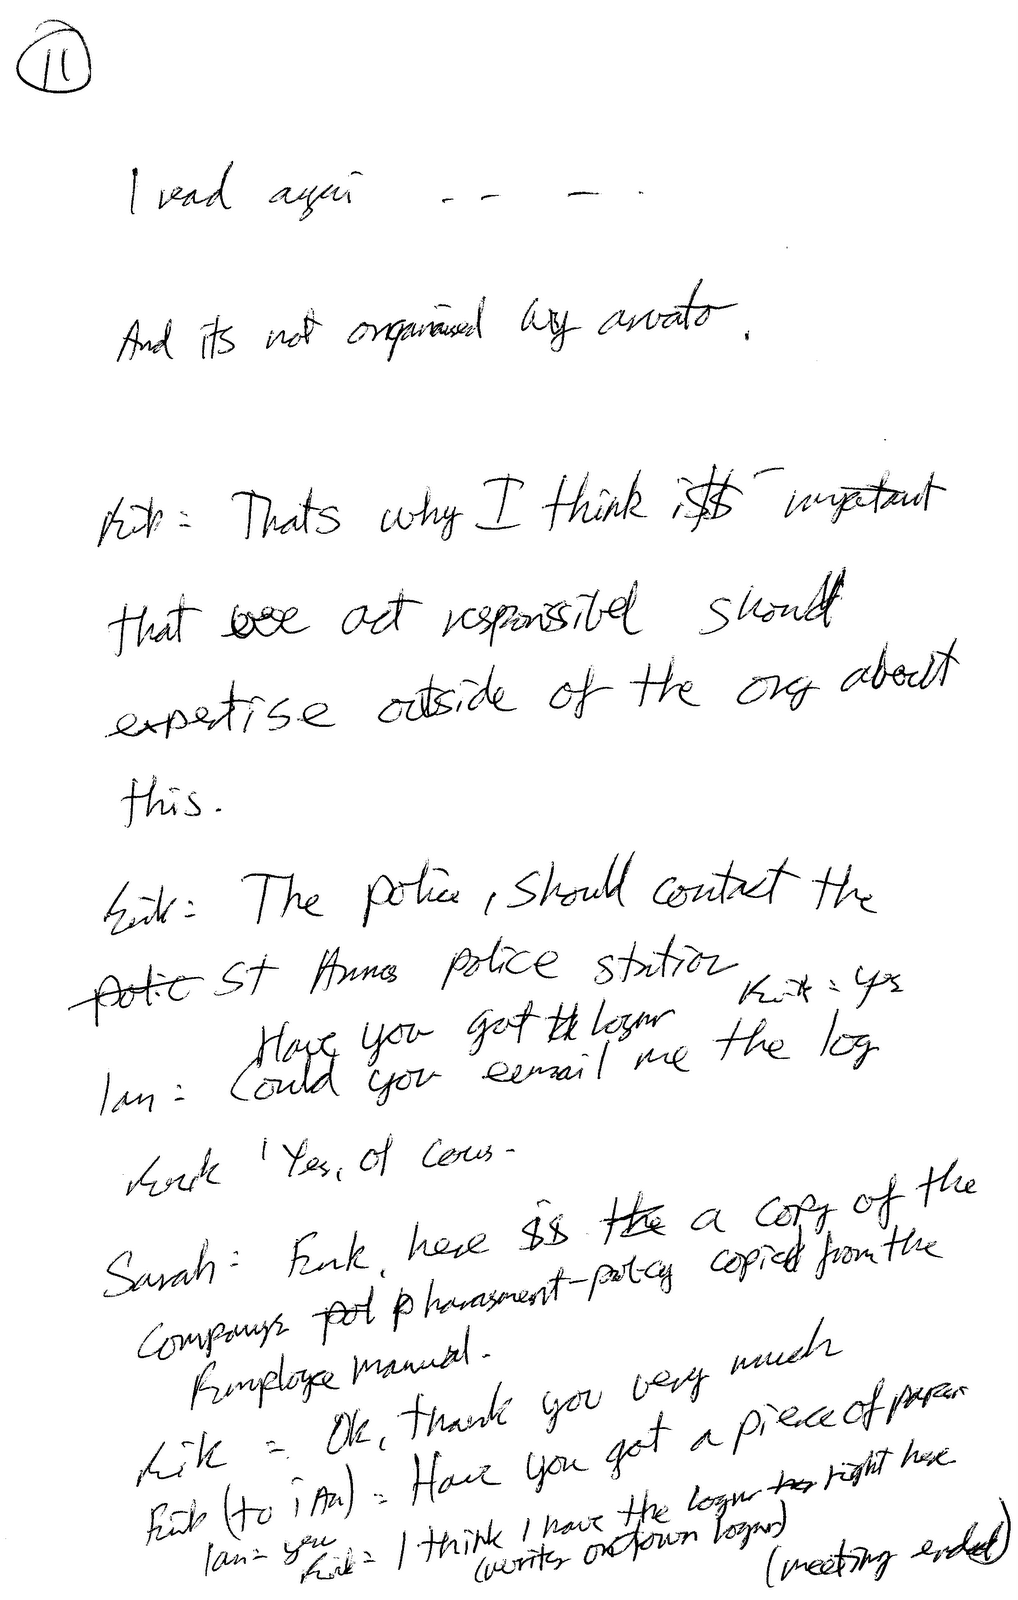 11
I read again -- -.
And its not organised by arvato.
Erik = Thats why I think is important
that we act responsibel should
expertise outside of the org about
this.
Erik = The police, should contact the
polic St Annes police station
Have you got the lognr Erik = yes
Ian = Could you eemail me the log
Erik Yes, of cours-
Sarah = Erik, here is the a copy of the
Companys pol p harasment-policy copied from the
Employee manual.
Erik = Ok, thank you very much
Erik (to iAn) = Have you got a piece of paper
Ian = yes Erik = I think I have the lognr right here
(writes down lognr)
(meeting ended)